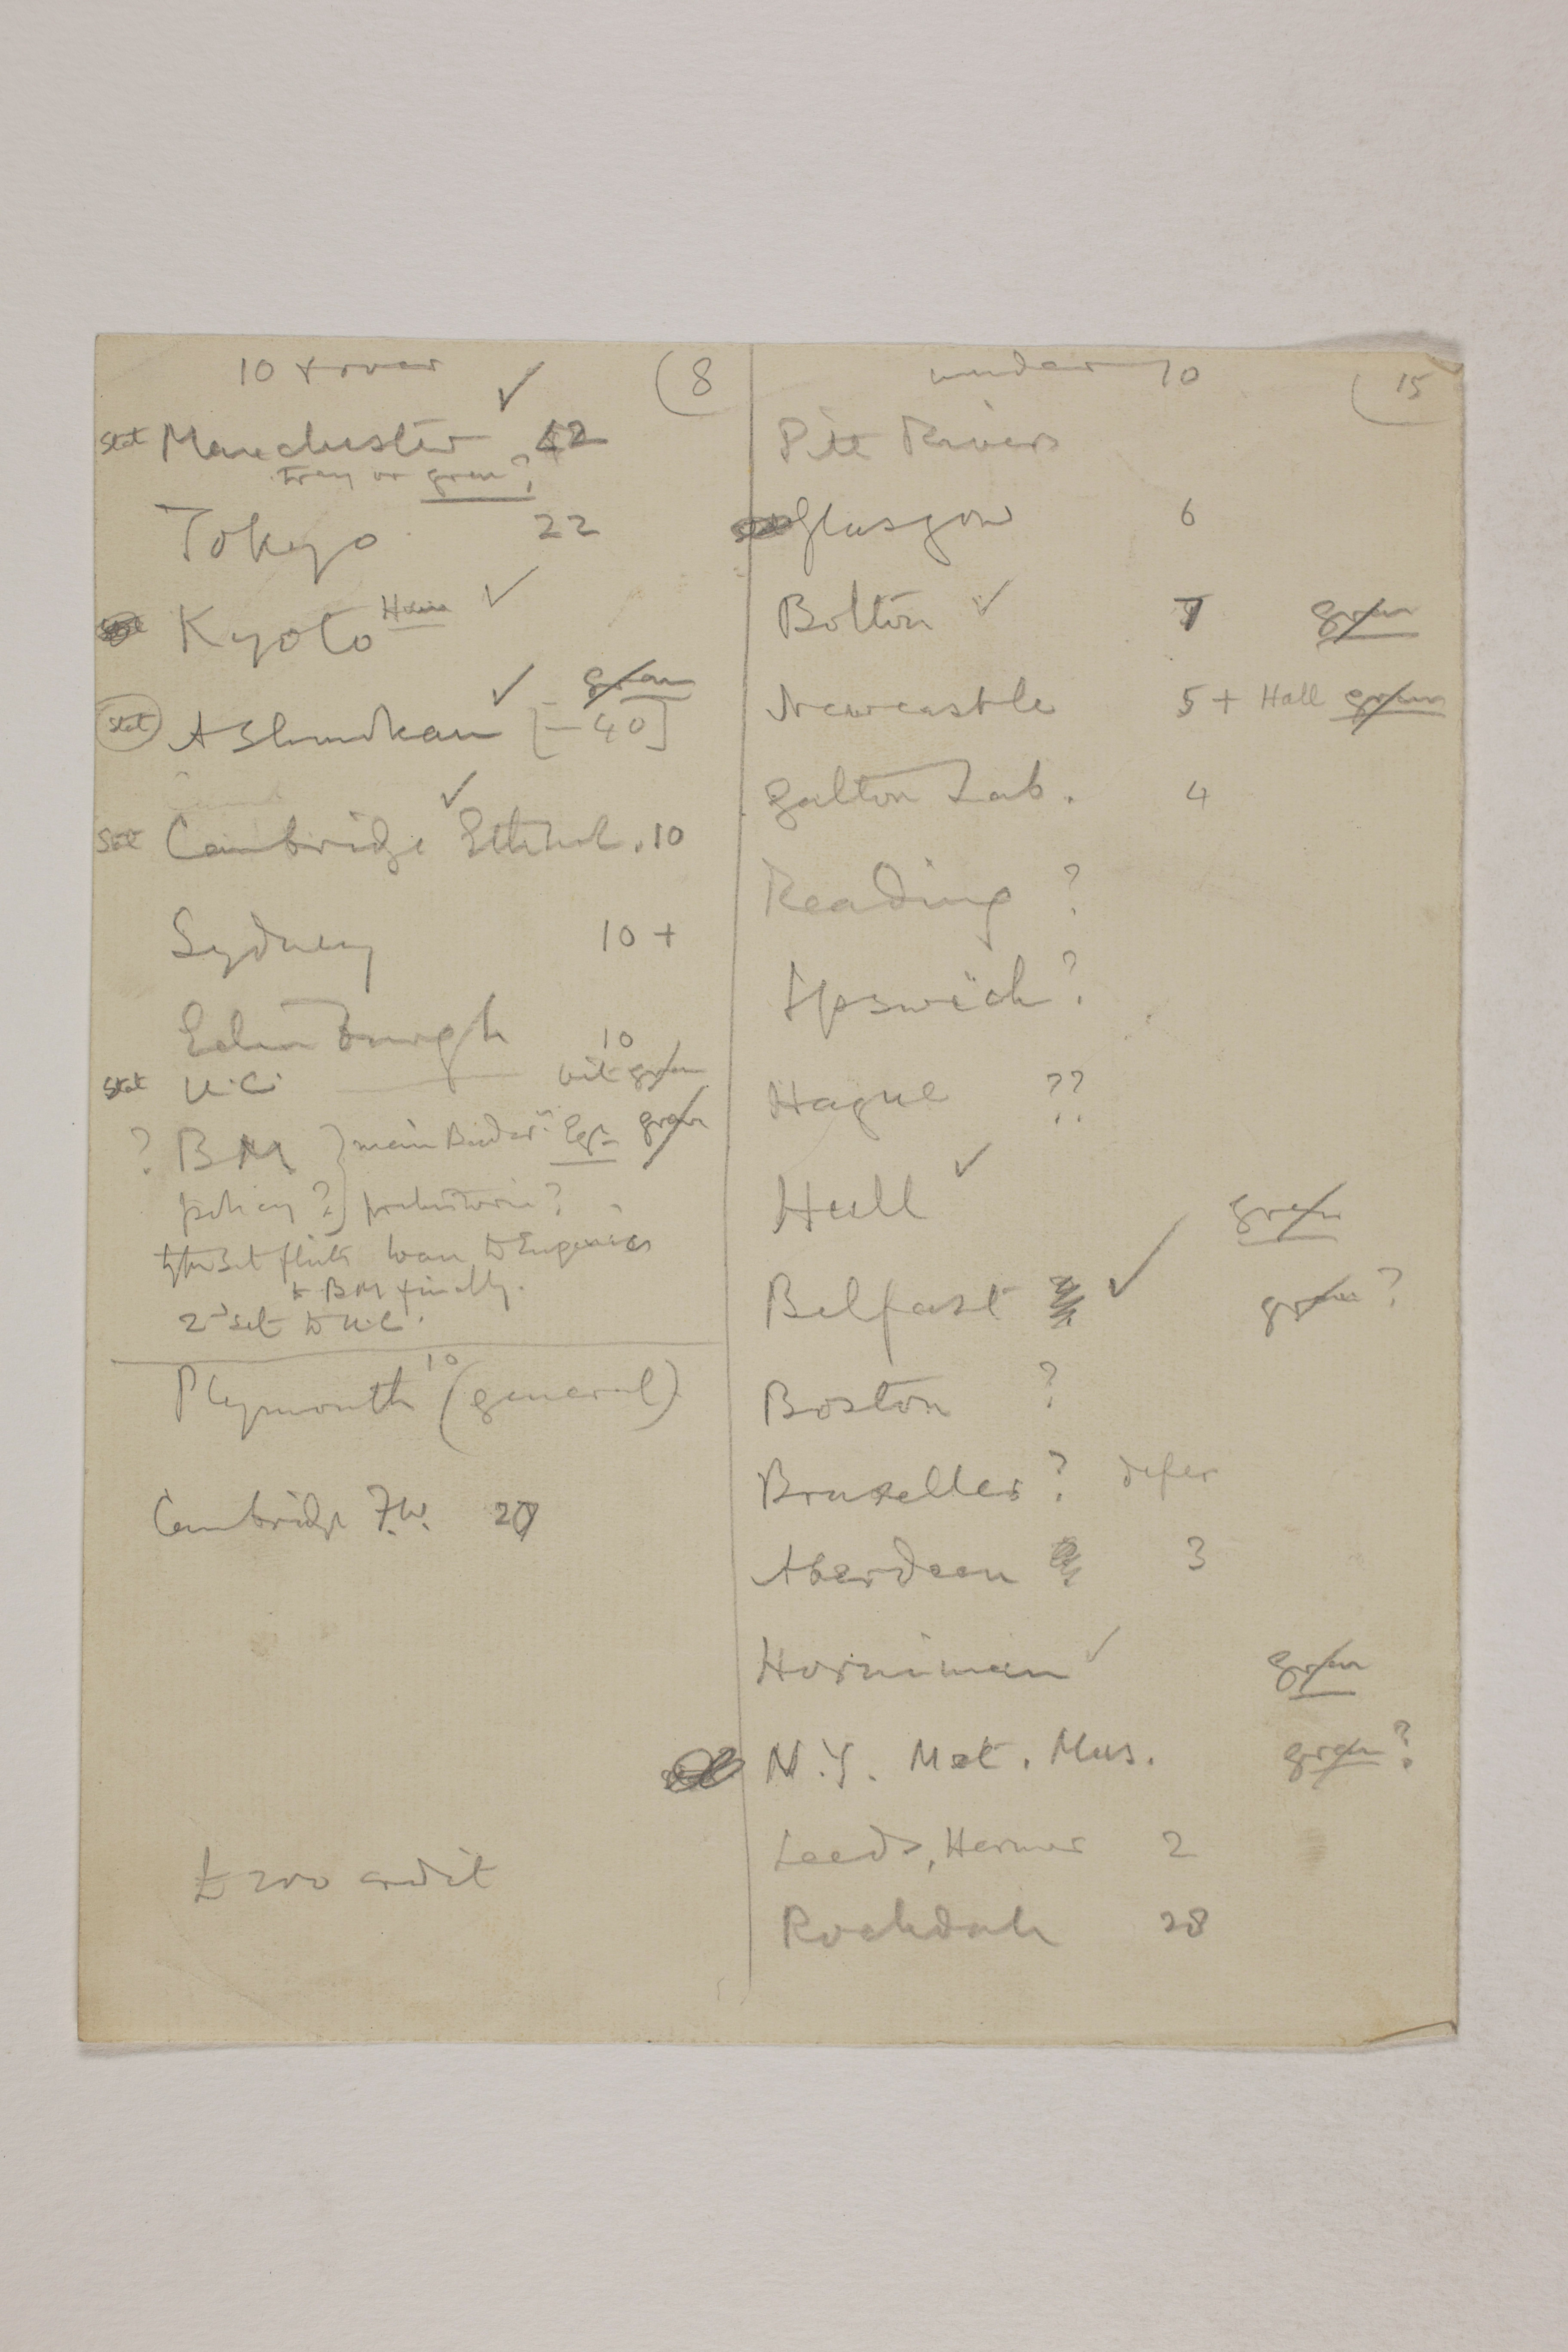 10 + over (8
Stat Manchester 42
tray or gran?
Tokyo 22
Kyoto
Ashmolean [— 40]
Stat
gran
Stat Cambridge Ethnol. 10
Sydney 10 +
Edinburgh 10
Stat U.C. gran
? B M } main Badar.n Eg. gran
policy? } prehistoric?
type set flints loan to Eugenics
to BM finally.
2d set to U.C.
Plymouth 10 (general)
Cambridge F.W. 27
£200 credit
under 10 (15
Pitt Rivers
Glasgow 6
Bolton 7 gran
Newcastle 5 + Hall gran
Galton Lab. 4
Reading ?
Ipswich ?
Hague ??
Hull gran
Belfast gran ?
Boston ?
Bruxelles ? defer
Aberdeen 3
Horniman gran
N.Y. Met. Mus. gran ?
Leeds, 2
Rochdale 28